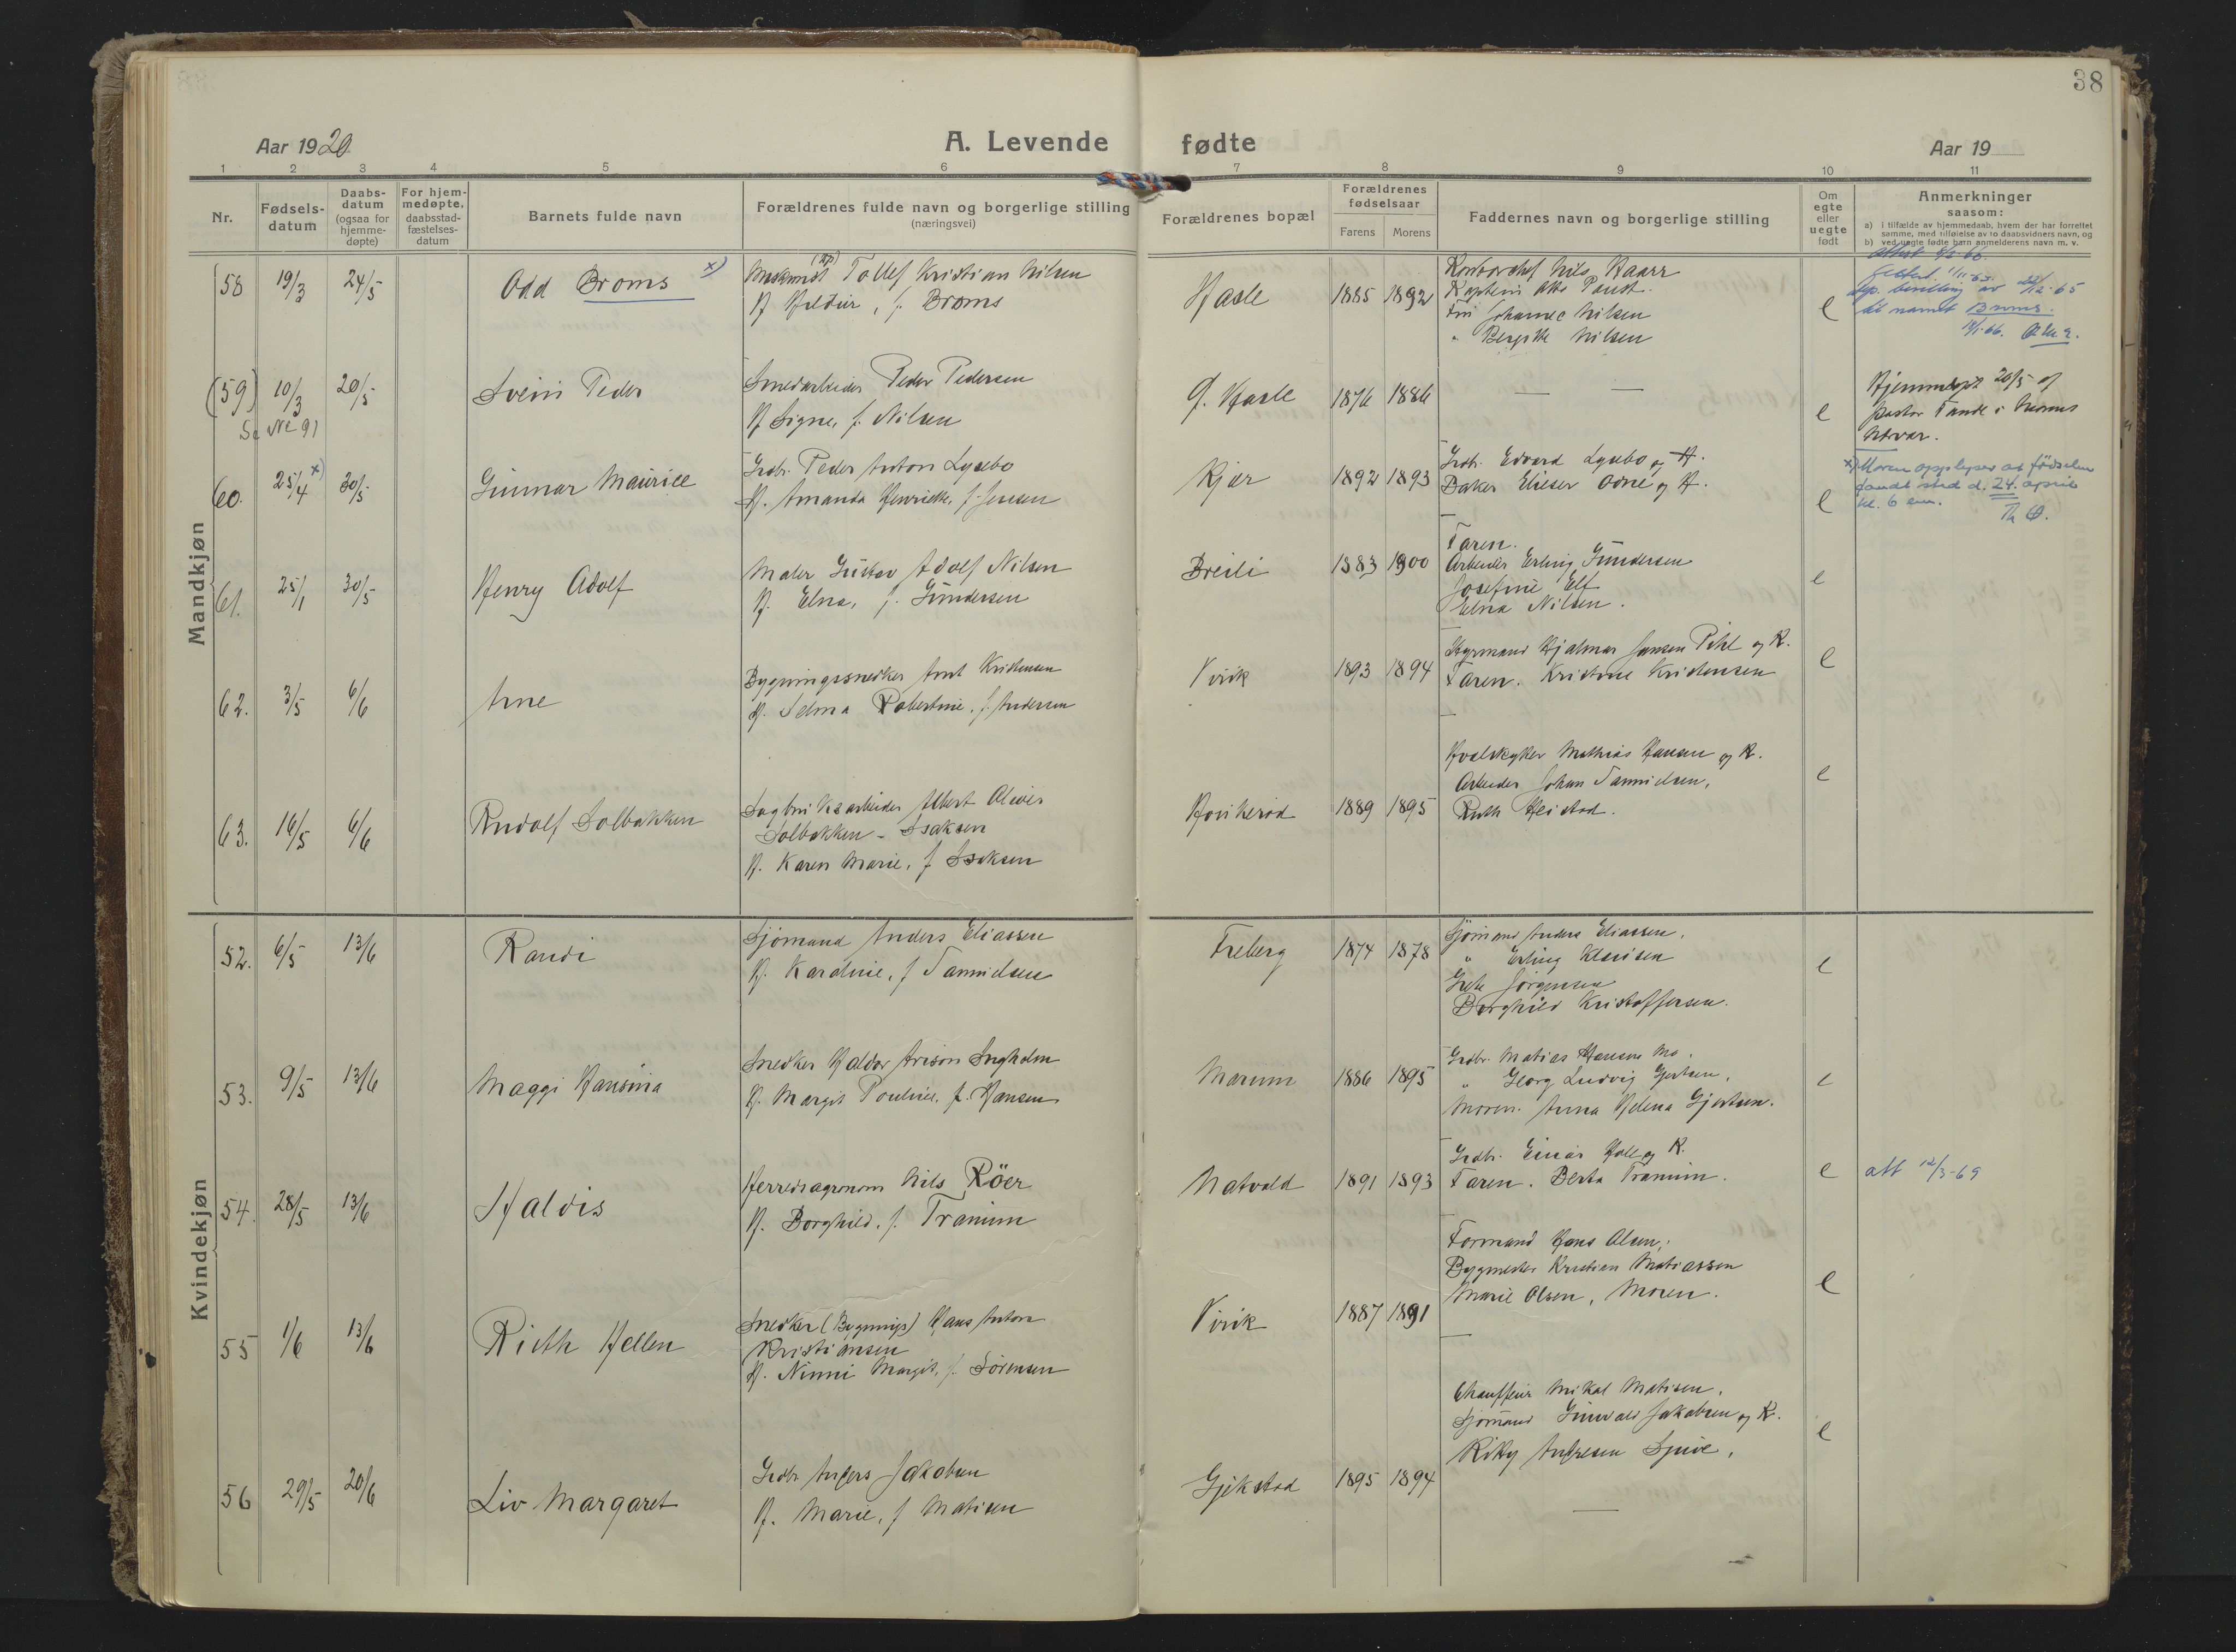 38
Aar 1920
A. Levende fødte
Aar 19
1 2 3 4 5 6 7 8 9 10 11
Nr.
Fødsels-
datum
Daabs-
datum
(ogsaa for
hjemme-
døpte)
For hjem-
medøpte,
daabsstad-
fæstelses-
datum
Barnets fulde navn
Forældrenes fulde navn og borgerlige stilling
(næringsvei)
Forældrenes bopæl
Forældrenes
fødselsaar
Farens Morens
Faddernes navn og borgerlige stilling
Om
egte
eller
uegte
født
Anmerkninger
saasom:
a) i tilfælde av hjemmedaab, hvem der har forrettet
samme, med tilføielse av to daabsvidners navn, og
b) ved uegte fødte barn anmelderens navn m. v.
Mandkjøn
58 19/3 24/5 Odd Broms x)
Tollef Kristian Nilsen
H Hildur, f. Broms
Hasle 1885 1892
Nils Kaarr
Kaptein Otto
Johanne Nilsen
" Bergitte Nilsen
e
av 22/12-65
til navnet Broms.
14/1-66.
(59) 10/3 20/5 Svein Peder
Se No 91
Smedarbeider Peder Pedersen
H Signe, f. Nilsen
Ø. Hasle 1876 1886
—
e
Hjemmedøpt 20/5 af
pastor Tande i
60. 25/4 x) 30/5 Gunnar Maurice
Grdbr. Peder Anton Lysebo
H. Amanda Henriette, f. Jensen
Kjær 1892 1893
Grdb. Edvard Lysebo og H.
Baker Elieser Odne og H.
e
x) Moren opplyser at fødselen
fandt sted d. 24. april
kl. 6 em.
61. 25/1 30/5 Henry Adolf
Maler Gustav Adolf Nilsen
H. Elna, f. Gundersen
Breili 1883 1900
Faren.
Arbeider Erling Gundersen
Josefine Elf
Elna Nilsen.
e
62. 3/5 6/6 Arne
Bygningssnedker Arnt Kristensen
H. Selma Robertine, f. Andersen
Virik 1893 1894
Styrmand Hjalmar Jensen Pihl og K.
Faren. Kristine Kristensen
e
63. 16/5 6/6 Rudolf Solbakken
Sagbruksarbeider Albert Oliver
Solbakken - Isaksen
H. Karen Marie, f Isaksen
Haukerød 1889 1895
Hvalskytter Mathias Hansen og K.
Arbeider Johan Danielsen,
Ruth Heistad.
e
Kvindekjøn
52. 6/5 13/6 Randi
Sjømand Anders Eliassen
H. Karoline, f Danielsen
Freberg 1874 1878
Sjømand Anders Eliassen,
" Erling Klausen
Grete Jørgensen
Borghild Kristoffersen.
e
53. 9/5 13/6 Maggi Hansina
Snedker Haldor Arison Ingholm
H. Margit Pouline, f. Hansen
Marum 1886 1895
Grdbr. Matias Hansen
" Georg Ludvig Gjertsen,
Moren. Anna Helena Gjertsen.
e
54. 28/5 13/6 Haldis
Herredsagronom Nils Röer
H. Borghild, f. Tranum
Natvald 1891 1893
Grdbr. Einar Hall og K.
Faren. Berta Tranum.
e
att 12/3-69
55 1/6 13/6 Ruth Hellen
Snedker (Bygnings) Hans Anton
Kristiansen
H. Ninni Margit, f. Sørensen
Virik 1887 1891
Formand Hans Olsen,
Bygmester Kristian Matiassen
Marie Olsen, Moren.
e
56 29/5 20/6 Liv Margaret
Grdbr Anders Jakobsen
H. Marie, f Matisen
Gjekstad 1895 1894
Chauffeur Mikal Matisen,
Sjømand Gunvald Jakobsen og K.
Riky Andresen
e
—